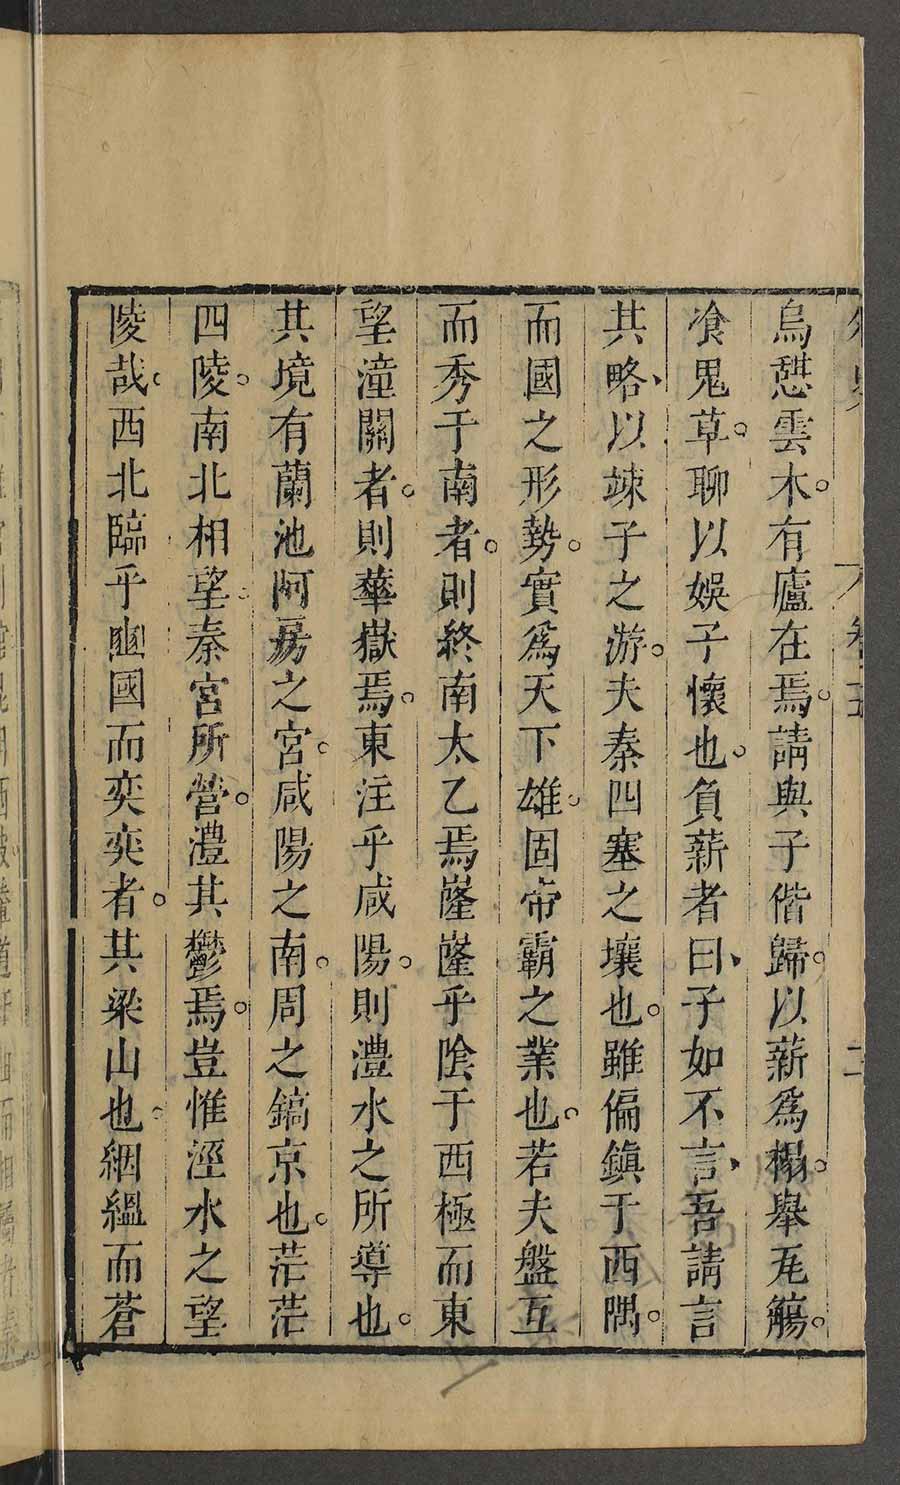 烏憇雲木。有廬在焉。請與子偕歸。以薪爲榻。舉巵觴。
飡鬼草。聊以娛子懷也。負薪者曰、子如不言、吾請言
其略、以竦子之游。夫秦四塞之壤也。雖偏鎮于西隅。
而國之形勢。實爲天下雄。固帝霸之業也。若夫盤互
而秀于南者。則終南太乙焉嶐嶐乎陰于西極而東
望潼關者。則華嶽焉。東注乎咸陽。則澧水之所導也。
其境有蘭池阿房之宮。咸陽之南。周之鎬京也。茫茫
四陵。南北相望秦宮所營。澧其鬱焉。豈惟涇水之望
陵哉。西北臨乎豳國而奕奕者。其梁山也。絪縕而蒼